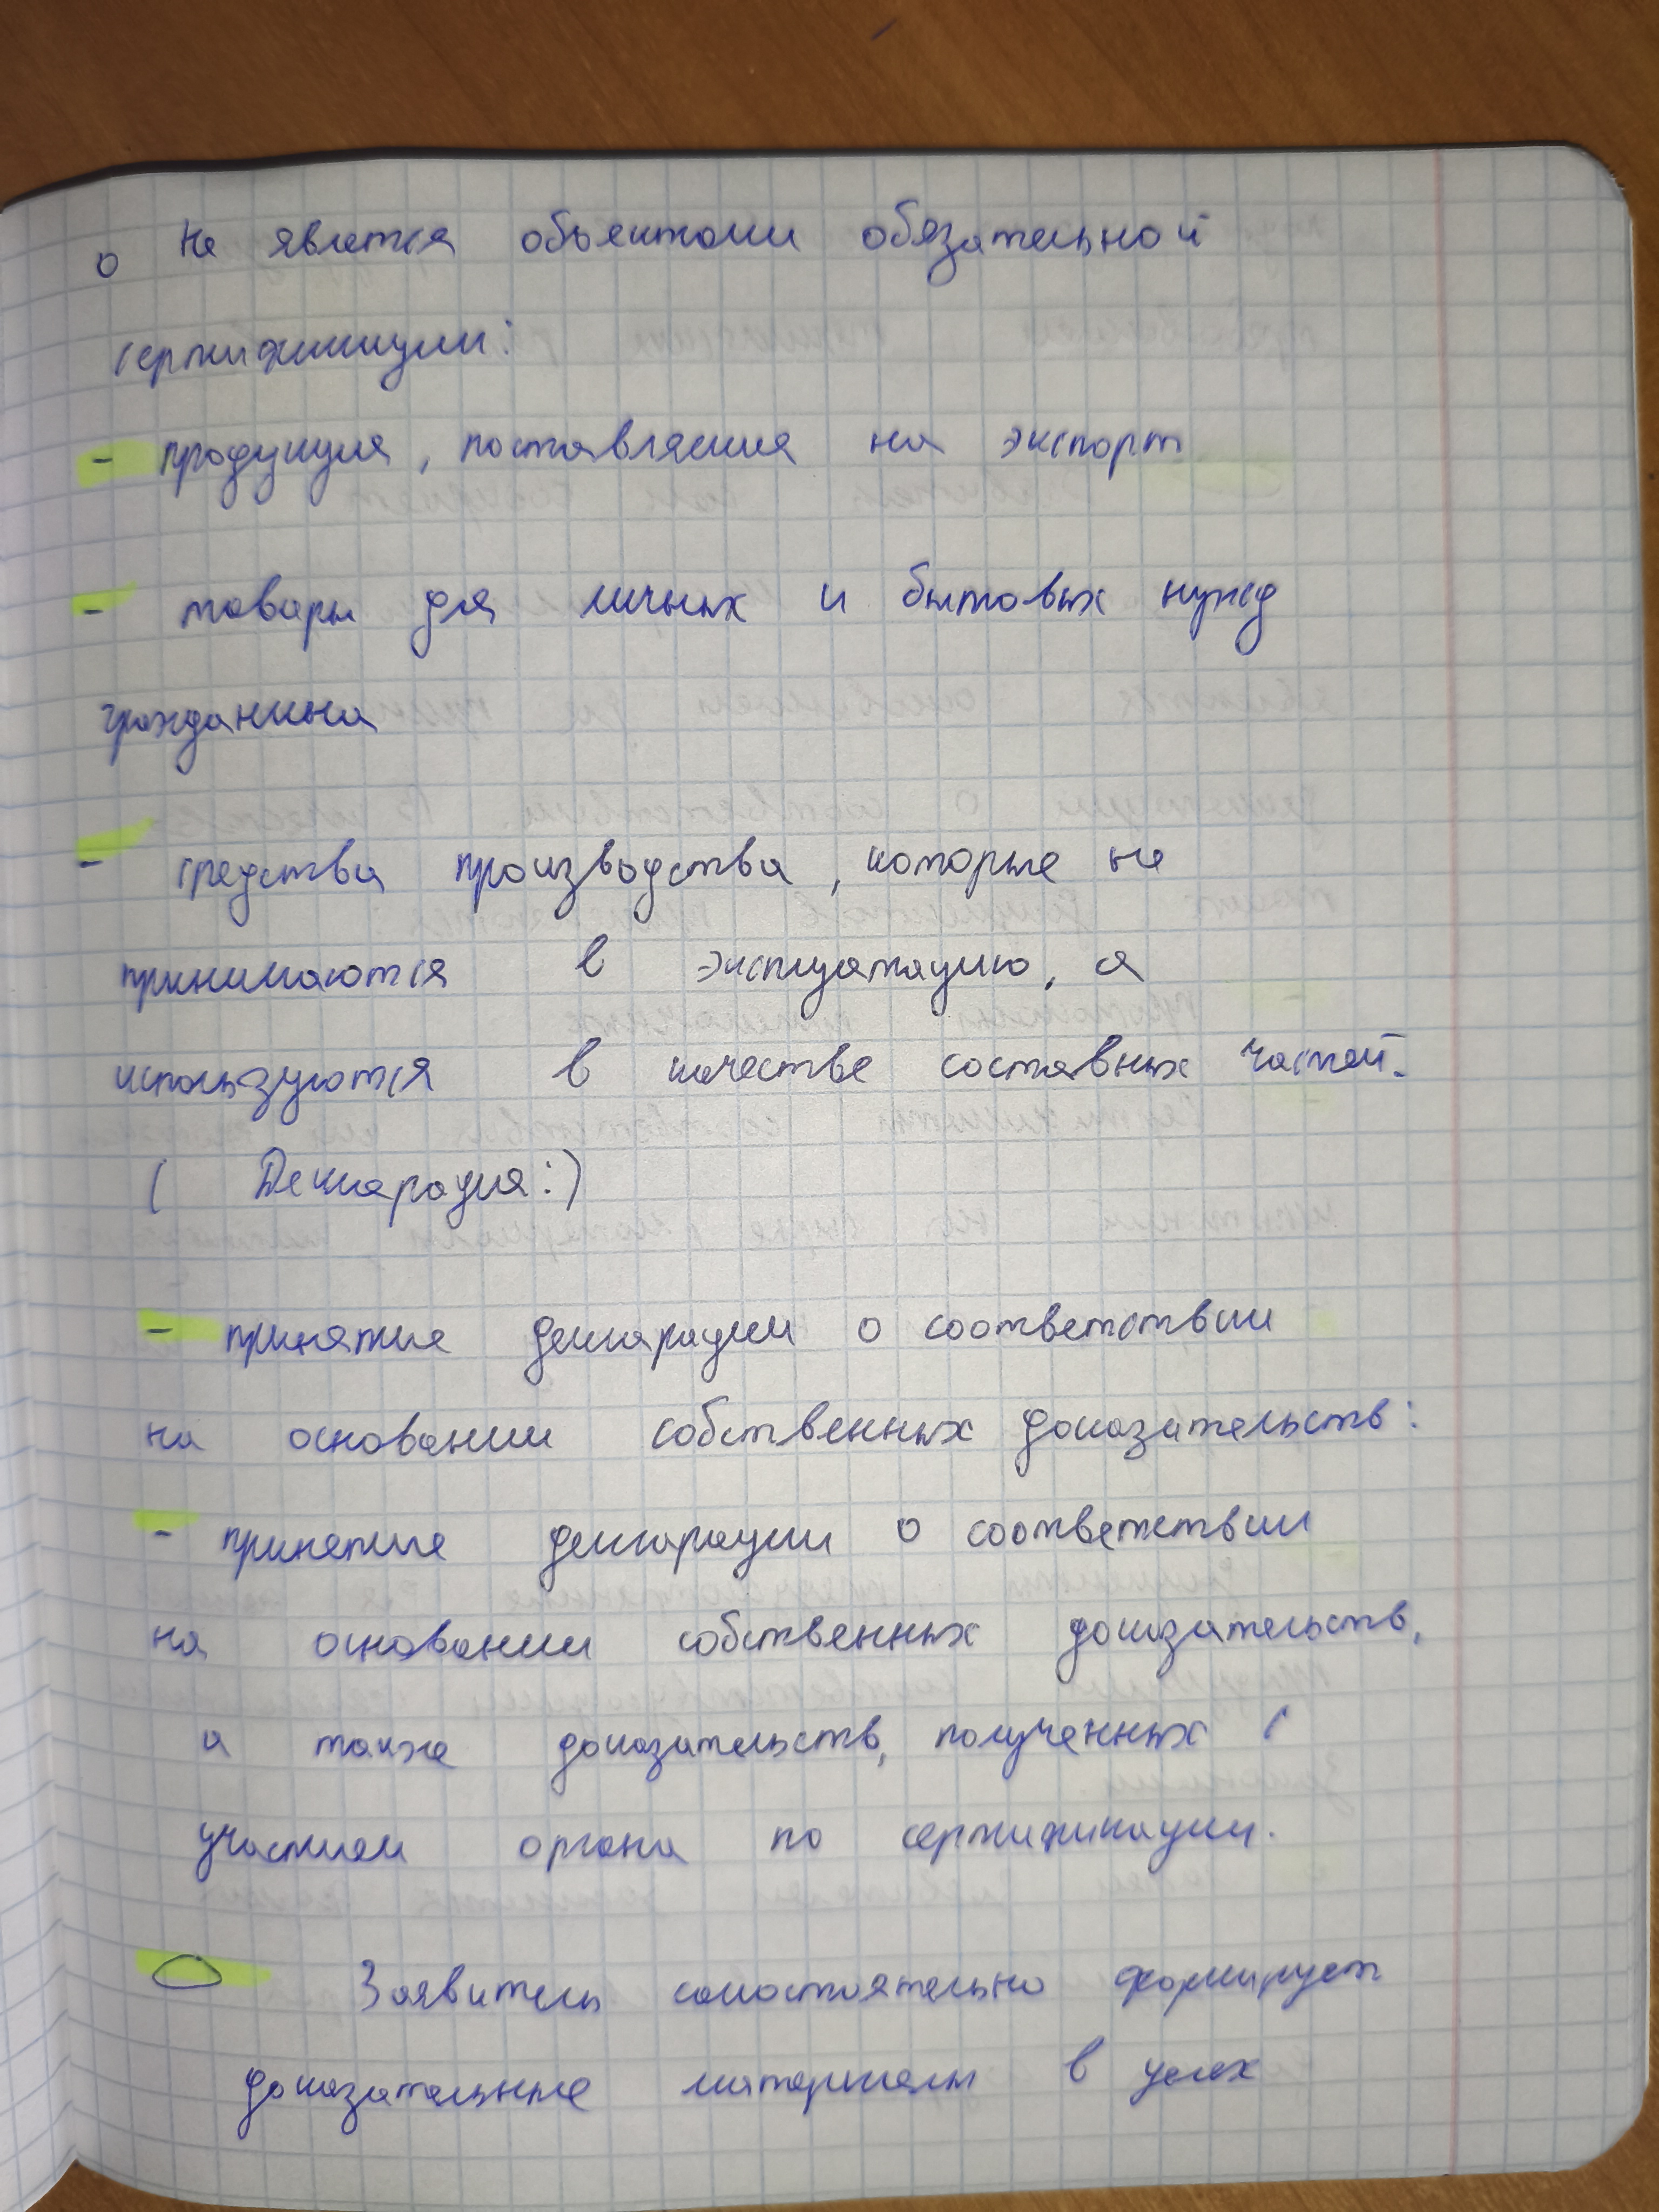 о Не явлется объектами обязательной
сертификации:
- продукция, поставляемая на экспорт
- товары для личных и бытовых нужд
гражданина
- средства производства, которые не
принимаются в эксплуатацию, а
используются в качестве составных частей.
( Декларация:)
- принятие декларации о соответствии
на основании собственных доказательств:
- принятие декларации о соответствии
на основании собственных доказательств,
а также доказательств, полученных с
участием органа по сертификации.
Заявитель самостоятельно формирует
доказательные материалы в целях